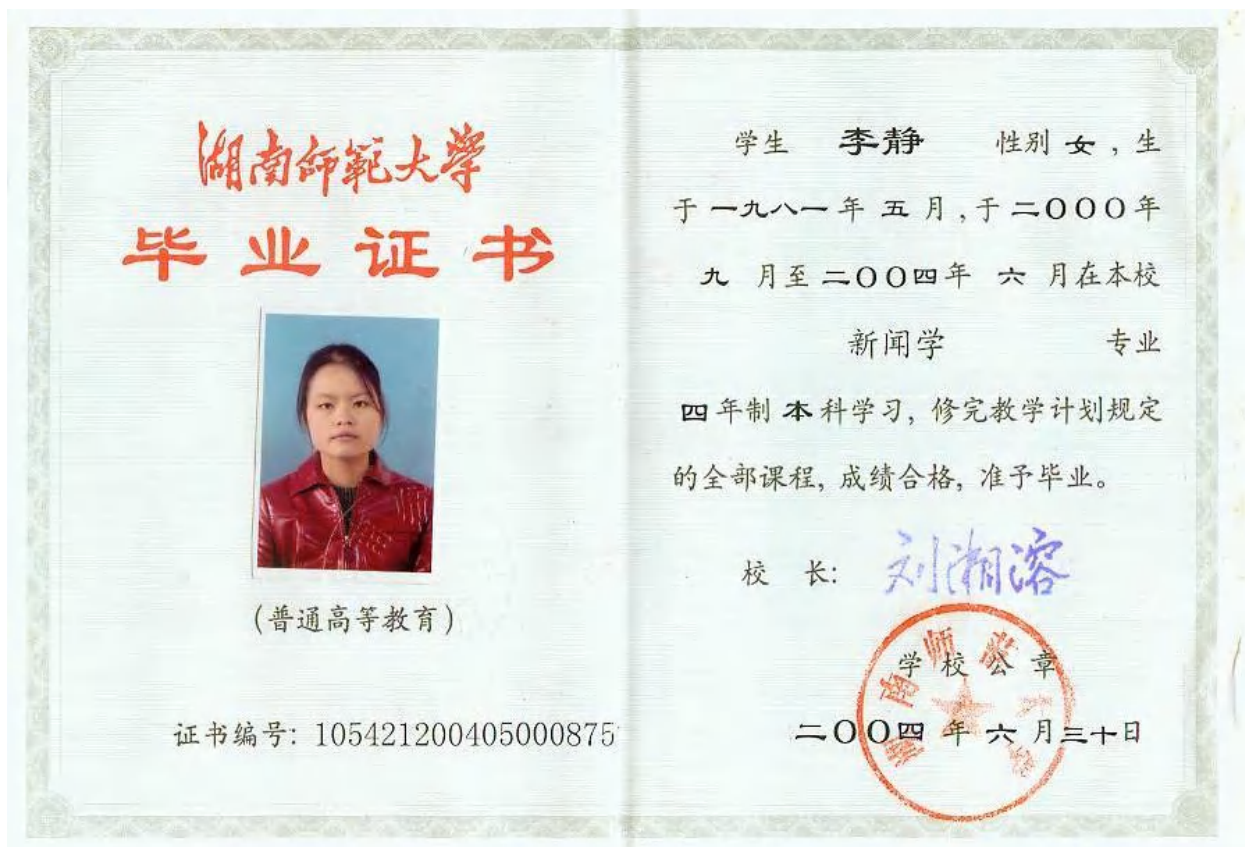 湖南师範大学
毕业证书
(普通高等教育)
证书编号: 105421200405000875
学生 李静 性别 女, 生
于 一九八一 年 五 月, 于 二〇〇〇 年
九 月至 二〇〇四 年 六 月在本校
新闻学 专业
四 年制 本 科学习, 修完教学计划规定
的全部课程, 成绩合格, 准予毕业。
校 长: 刘湘溶
湖南师范大学
学校公章
二〇〇四 年 六 月 三十 日